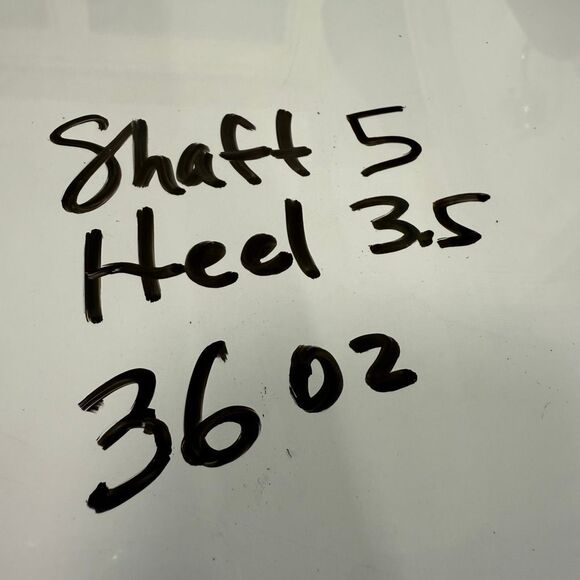 Shaft 5
Heel 3.5
36 oz